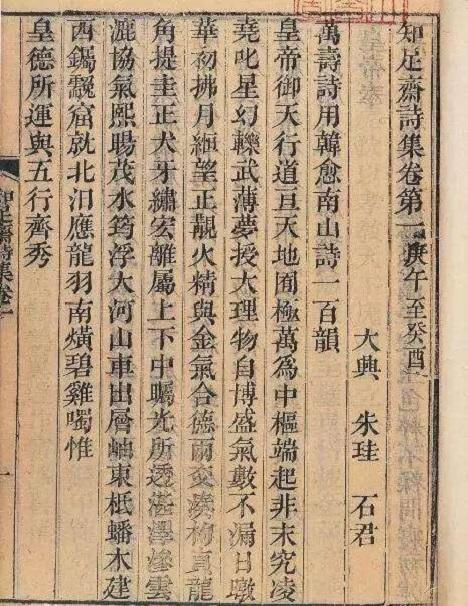 知足齋詩集卷第一 庚午至癸酉
大興 朱珪 石君
萬壽詩用韓愈南山詩一百韻
皇帝御天行道亘天地囿極萬為中樞端起非末究凌
堯叱星幻轢武薄夢授大理物自博盛氣數不漏日暾
華初拂月緪望正覯火精與金氣合德爾交湊枸直龍
角提圭正犬牙繡宏離屬上下中矚光所透湛澤滲雲
漉協氣熙暘茂水筠浮大河山車出層岫東柢蟠木建
西鐊觀窟就北汨應龍羽南爌碧雞噣惟
皇德所運與五行齊秀
知足齋詩集卷一
一